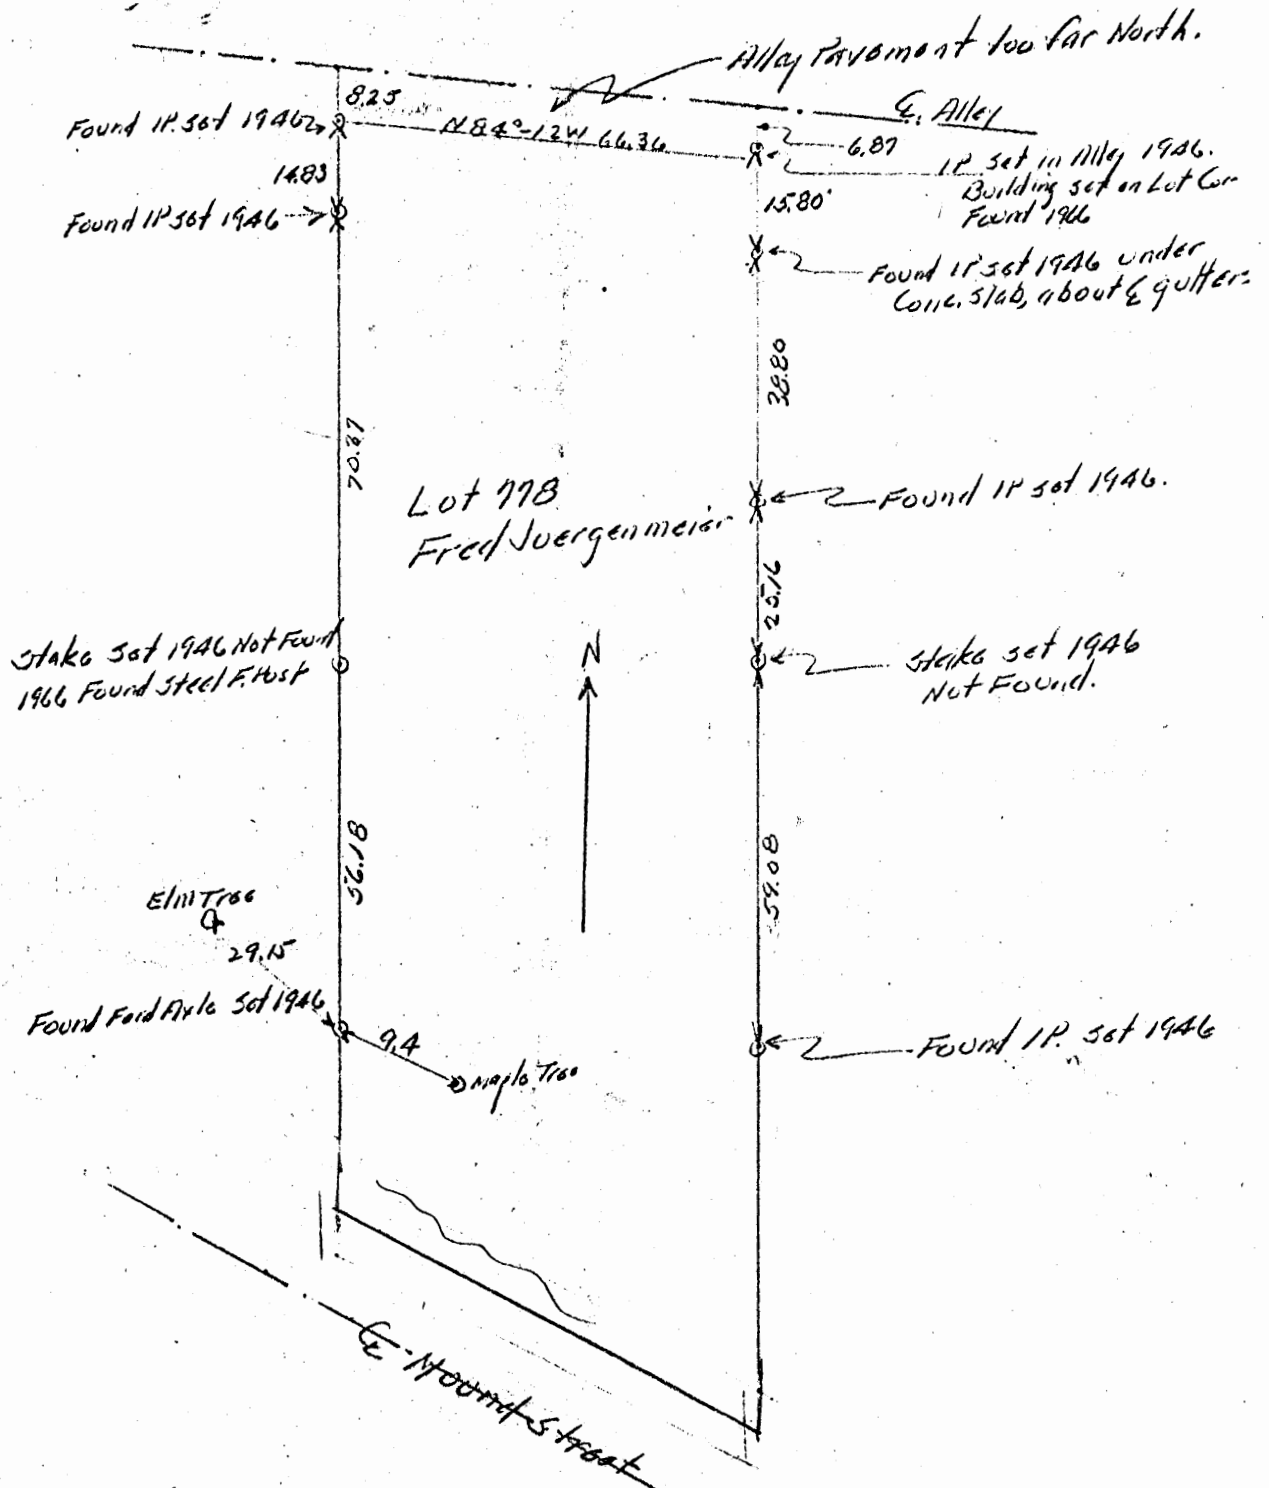 Alley Pavement too far North.
℄ Alley
8.25
Found IP. set 1946
N 84°-12 W 66.36
6.87
IP set in Alley 1946.
Building set on Lot Cor
Found 1966
14.83
15.80'
Found IP set 1946
Found IP set 1946 under
Conc. slab, about ℄ gutter.
38.80
70.37
Lot 778
Fred Juergenmeier
Found IP set 1946.
25.16
Stake Set 1946 Not Found
1966 Found Steel F. Post
N
Stake set 1946
Not Found.
56.18
59.08
Elm Tree
29.15
Found Ford Axle Set 1946
9.4
Maple Tree
Found IP. set 1946
℄ Mound Street